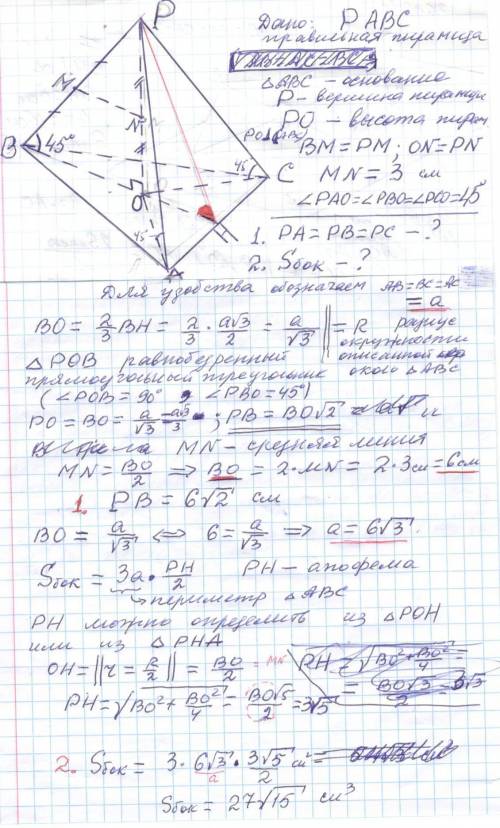 P
N
M
B
45°
O
45
C
45
A
Дано: PABC
правильная пирамида
△ABC - основание
P - вершина пирамиды
PO - высота пирам
PO⊥(ABC)
BM = PM ; ON = PN
MN = 3 см
∠PAO=∠PBO=∠PCO=45°
1. PA = PB = PC - ?
2. Sбок - ?
Для удобства обозначаем AB=BC=AC
= a
BO = 2/3 BH = 2/3 · a√3/2 = a/√3 || = R радиус
окружности
описанной
около △ABC
△POB равнобедренный
прямоугольный треугольник
(∠POB = 90°, ∠PBO = 45°)
PO = BO = a/√3 = a√3/3 ; PB = BO√2 и
MN - средней линия
MN = BO/2 ⇒ BO = 2·MN = 2·3см = 6см
1. PB = 6√2 см
BO = a/√3 ⇔ 6 = a/√3 ⇒ a = 6√3
Sбок = 3a · PH/2 PH - апофема
периметр △ABC
PH можно определить из △POH
или из △PHA
OH = || r = R/2 || = BO/2 = MN
PH = √(BO² + BO²/4) = BO√5/2 = 3√5
PH = √(BO² + BO²/4) =
= BO√3/2 = 3√3
2. Sбок = 3 · 6√3 · 3√5/2 см² =
a
Sбок = 27√15 см³